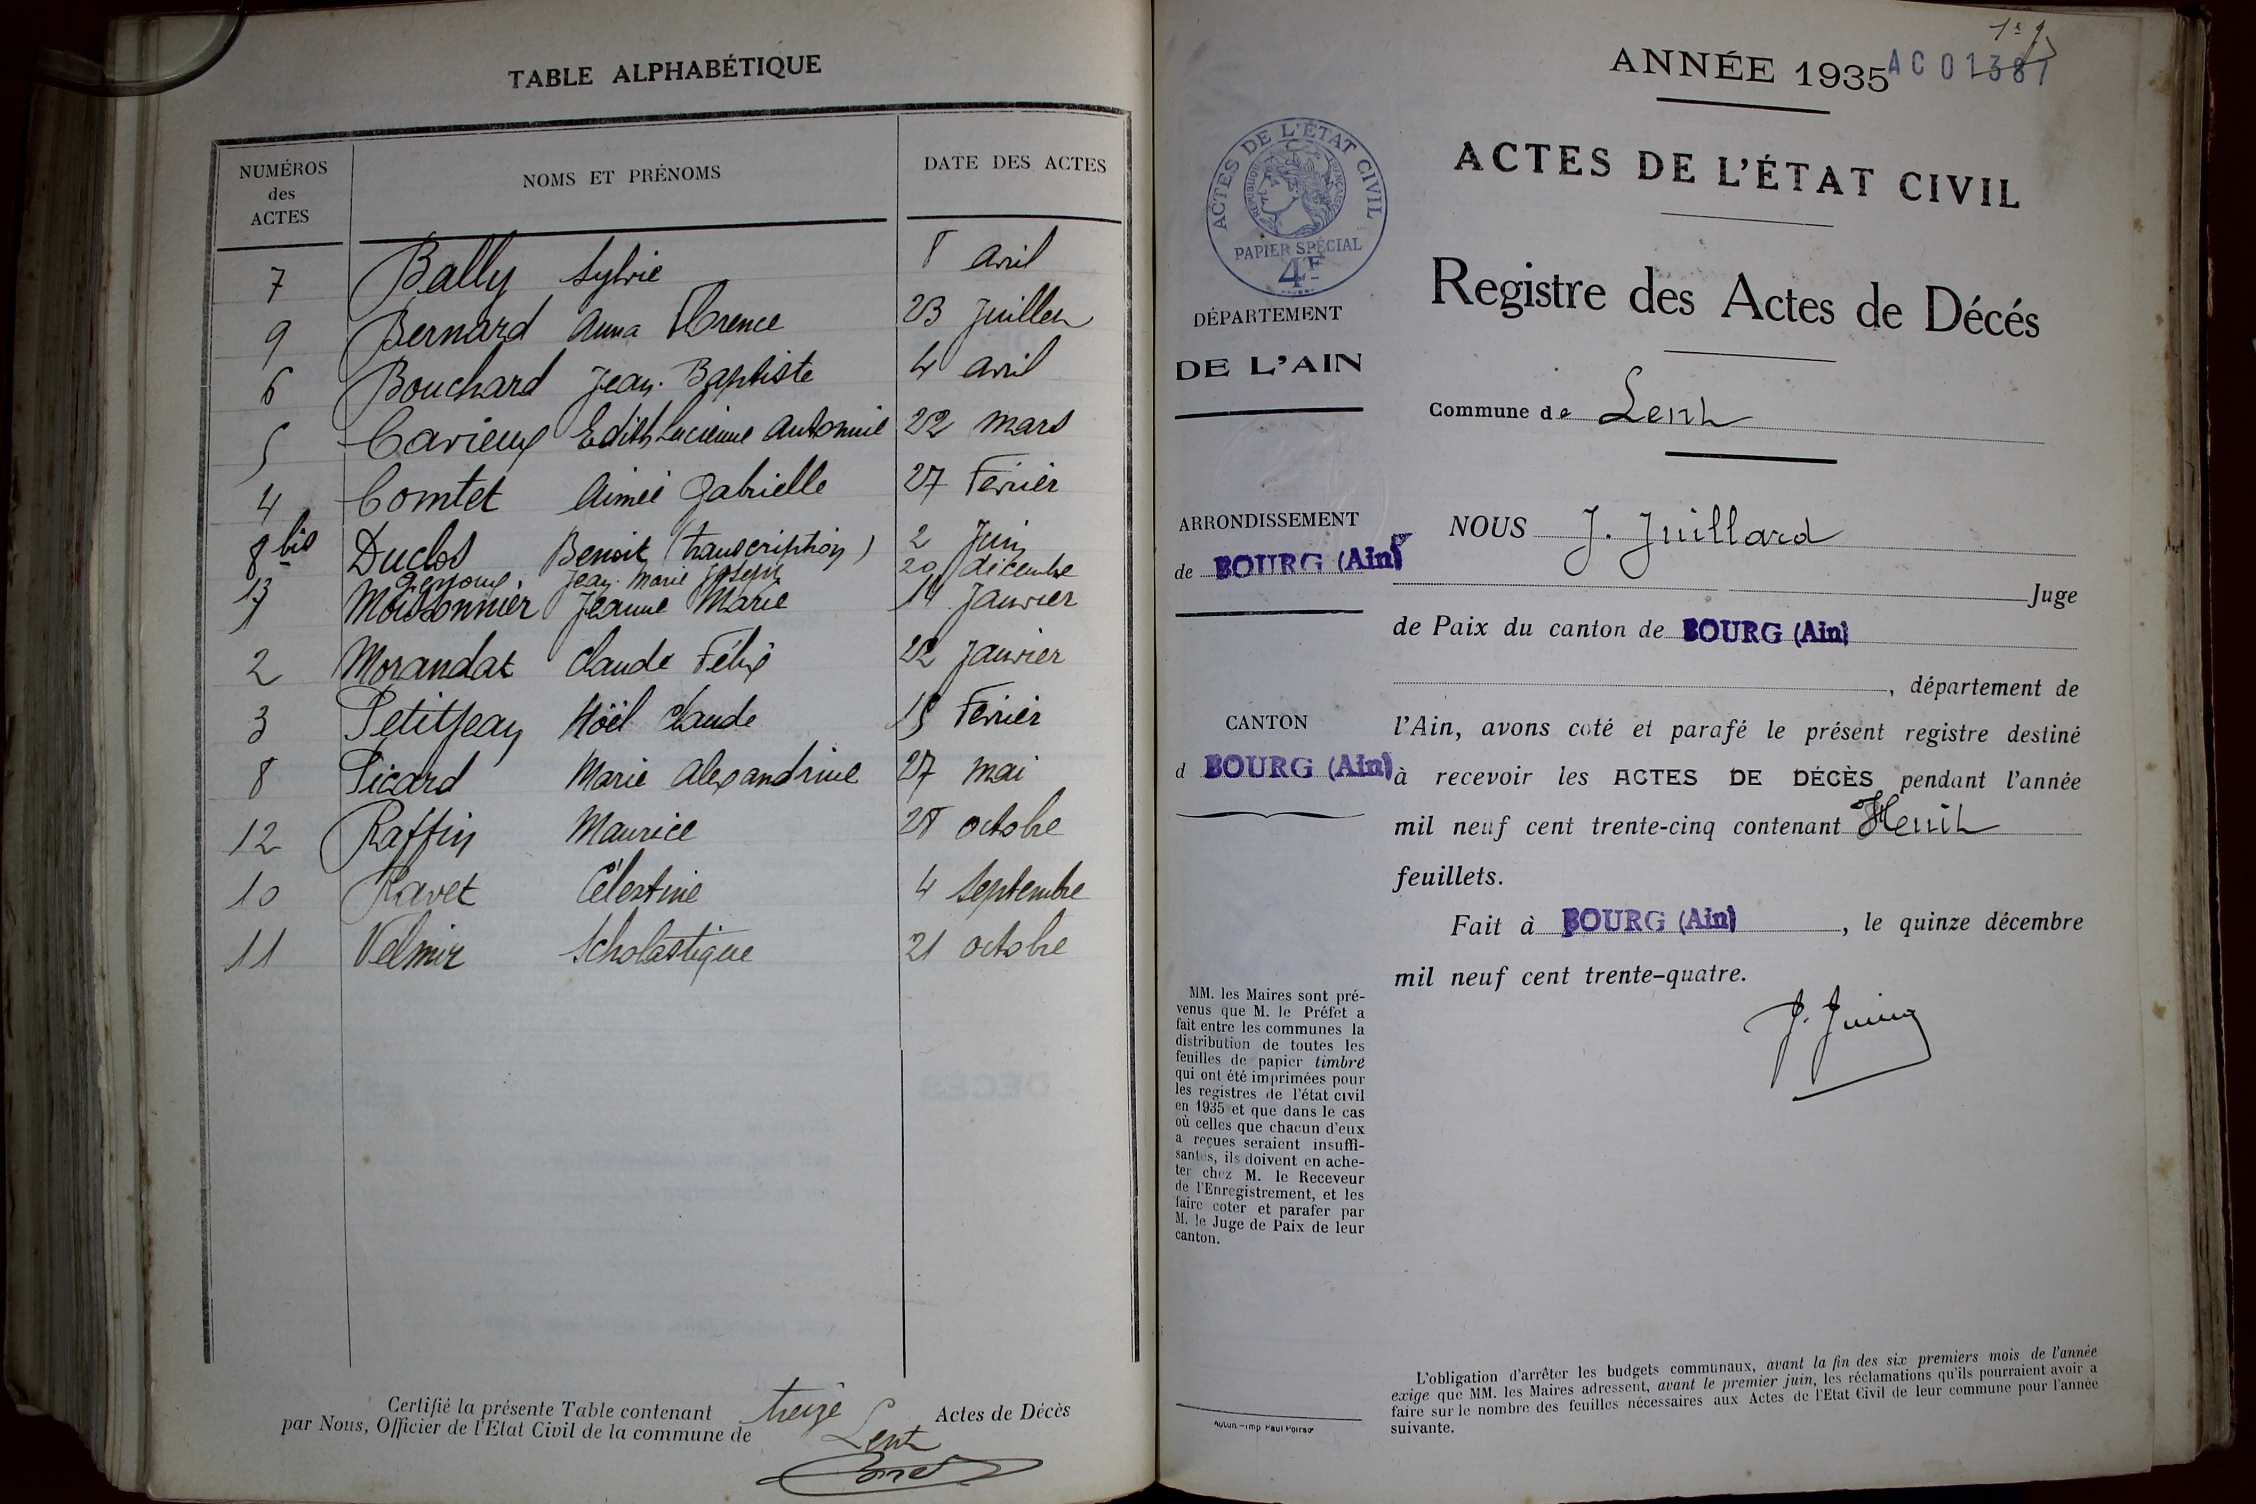 TABLE ALPHABÉTIQUE
NUMÉROS des ACTES NOMS ET PRÉNOMS DATE DES ACTES
7 Bally Sylvie 8 avril
9 Bernard Anna Florence 23 Juillet
6 Bouchard Jean-Baptiste 4 avril
5 Carieux Edith Lucienne Antonnie 22 mars
4 Comtet Aimée Gabrielle 27 Février
8 bis Duclos Benoit (transcription) 2 Juin
13 Jean Marie Joseph 20 décembre
1 Moissonnier Jeanne Marie 14 Janvier
2 Morandat Claude Félix 22 Janvier
3 Petitjean Noël Claude 15 Février
8 Picard Marie Alexandrine 27 mai
12 Raffin Maurice 28 octobre
10 Ravet Célestine 4 Septembre
11 Velmir Scholastique 21 octobre
Certifié la présente Table contenant treize Actes de Décès
par Nous, Officier de l'Etat Civil de la commune de Lent
1er
ANNÉE 1935 AC 01387
ACTES DE L'ÉTAT CIVIL
RÉPUBLIQUE FRANÇAISE
PAPIER SPÉCIAL
4F
DÉPARTEMENT
DE L'AIN
ARRONDISSEMENT
de BOURG (Ain)
CANTON
d BOURG (Ain)
MM. les Maires sont pré-
venus que M. le Préfet a
fait entre les communes la
distribution de toutes les
feuilles de papier timbré
qui ont été imprimées pour
les registres de l'état civil
en 1935 et que dans le cas
où celles que chacun d'eux
a reçues seraient insuffi-
santes, ils doivent en ache-
ter chez M. le Receveur
de l'Enregistrement, et les
faire coter et parafer par
M. le Juge de Paix de leur
canton.
ACTES DE L'ÉTAT CIVIL
Registre des Actes de Décés
Commune de Lent
NOUS J. Juillard
Juge
de Paix du canton de BOURG (Ain)
, département de
l'Ain, avons coté et parafé le présent registre destiné
à recevoir les ACTES DE DÉCÈS pendant l'année
mil neuf cent trente-cinq contenant Huit
feuillets.
Fait à BOURG (Ain), le quinze décembre
mil neuf cent trente-quatre.
L'obligation d'arrêter les budgets communaux, avant la fin des six premiers mois de l'année
exige que MM. les Maires adressent, avant le premier juin, les réclamations qu'ils pourraient avoir a
faire sur le nombre des feuilles nécessaires aux Actes de l'Etat Civil de leur commune pour l'année
suivante.